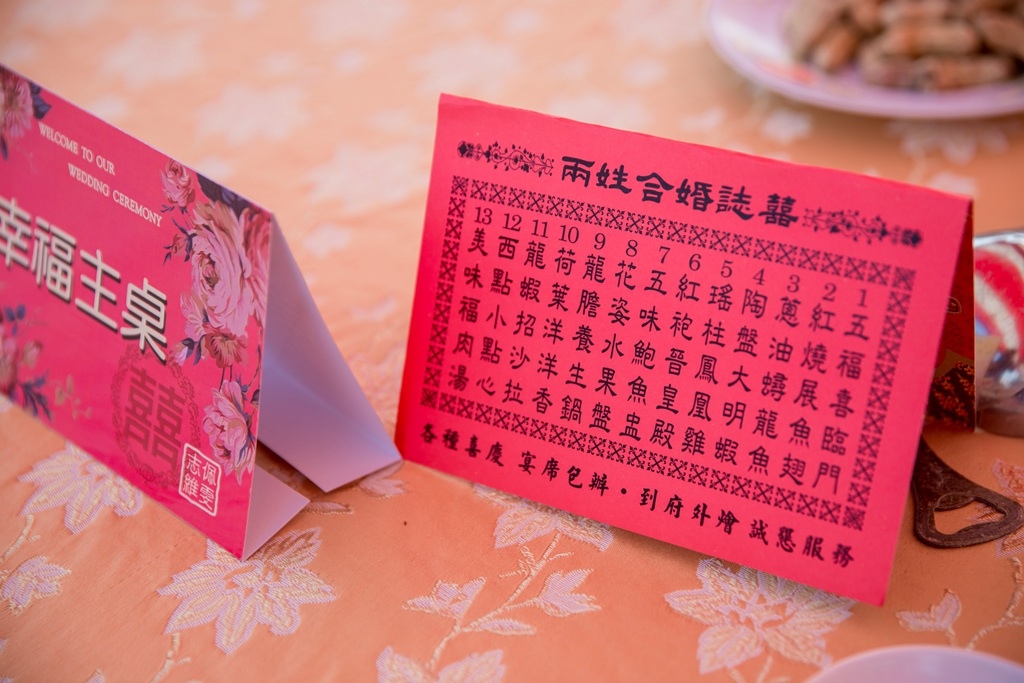 WELCOME TO OUR
WEDDING CEREMONY
幸福主桌
囍
佩雯
兩姓合婚誌囍
1 五福喜臨門
2 紅燒展魚翅
3 蔥油蟳龍魚
4 陶盤大明蝦
5 瑤柱鳳凰雞
6 紅袍晉皇殿
7 五味鮑魚盅
8 花姿水果盤
9 龍膽養生鍋
10 荷葉洋洋香
11 龍蝦招沙拉
12 西點小點心
13 美味福肉湯
各種喜慶 宴席包辦·到府外燴 誠懇服務